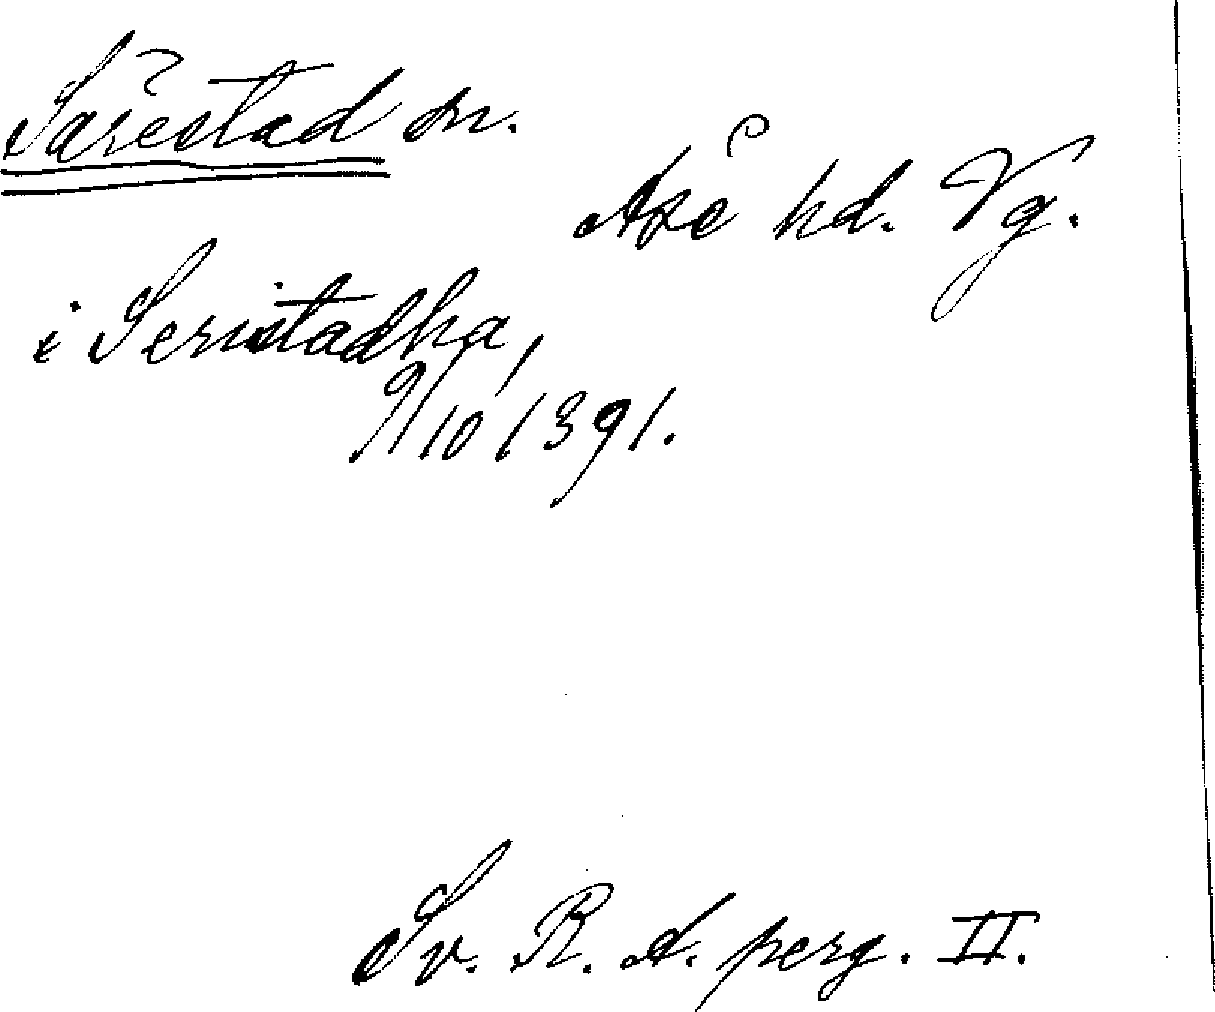 Särestad sn.
Åse hd. Vg.
i Seristadha,
9/10 1391.
Sv. R. A. perg. II.